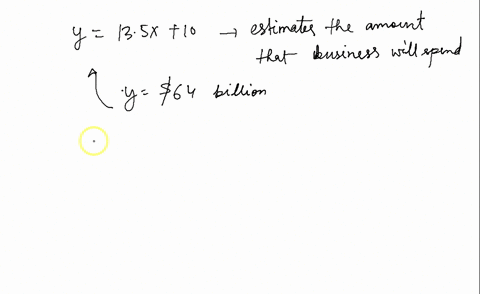 y = 13.5x + 10 → estimates the amount
that business will spend
y = $64 billion